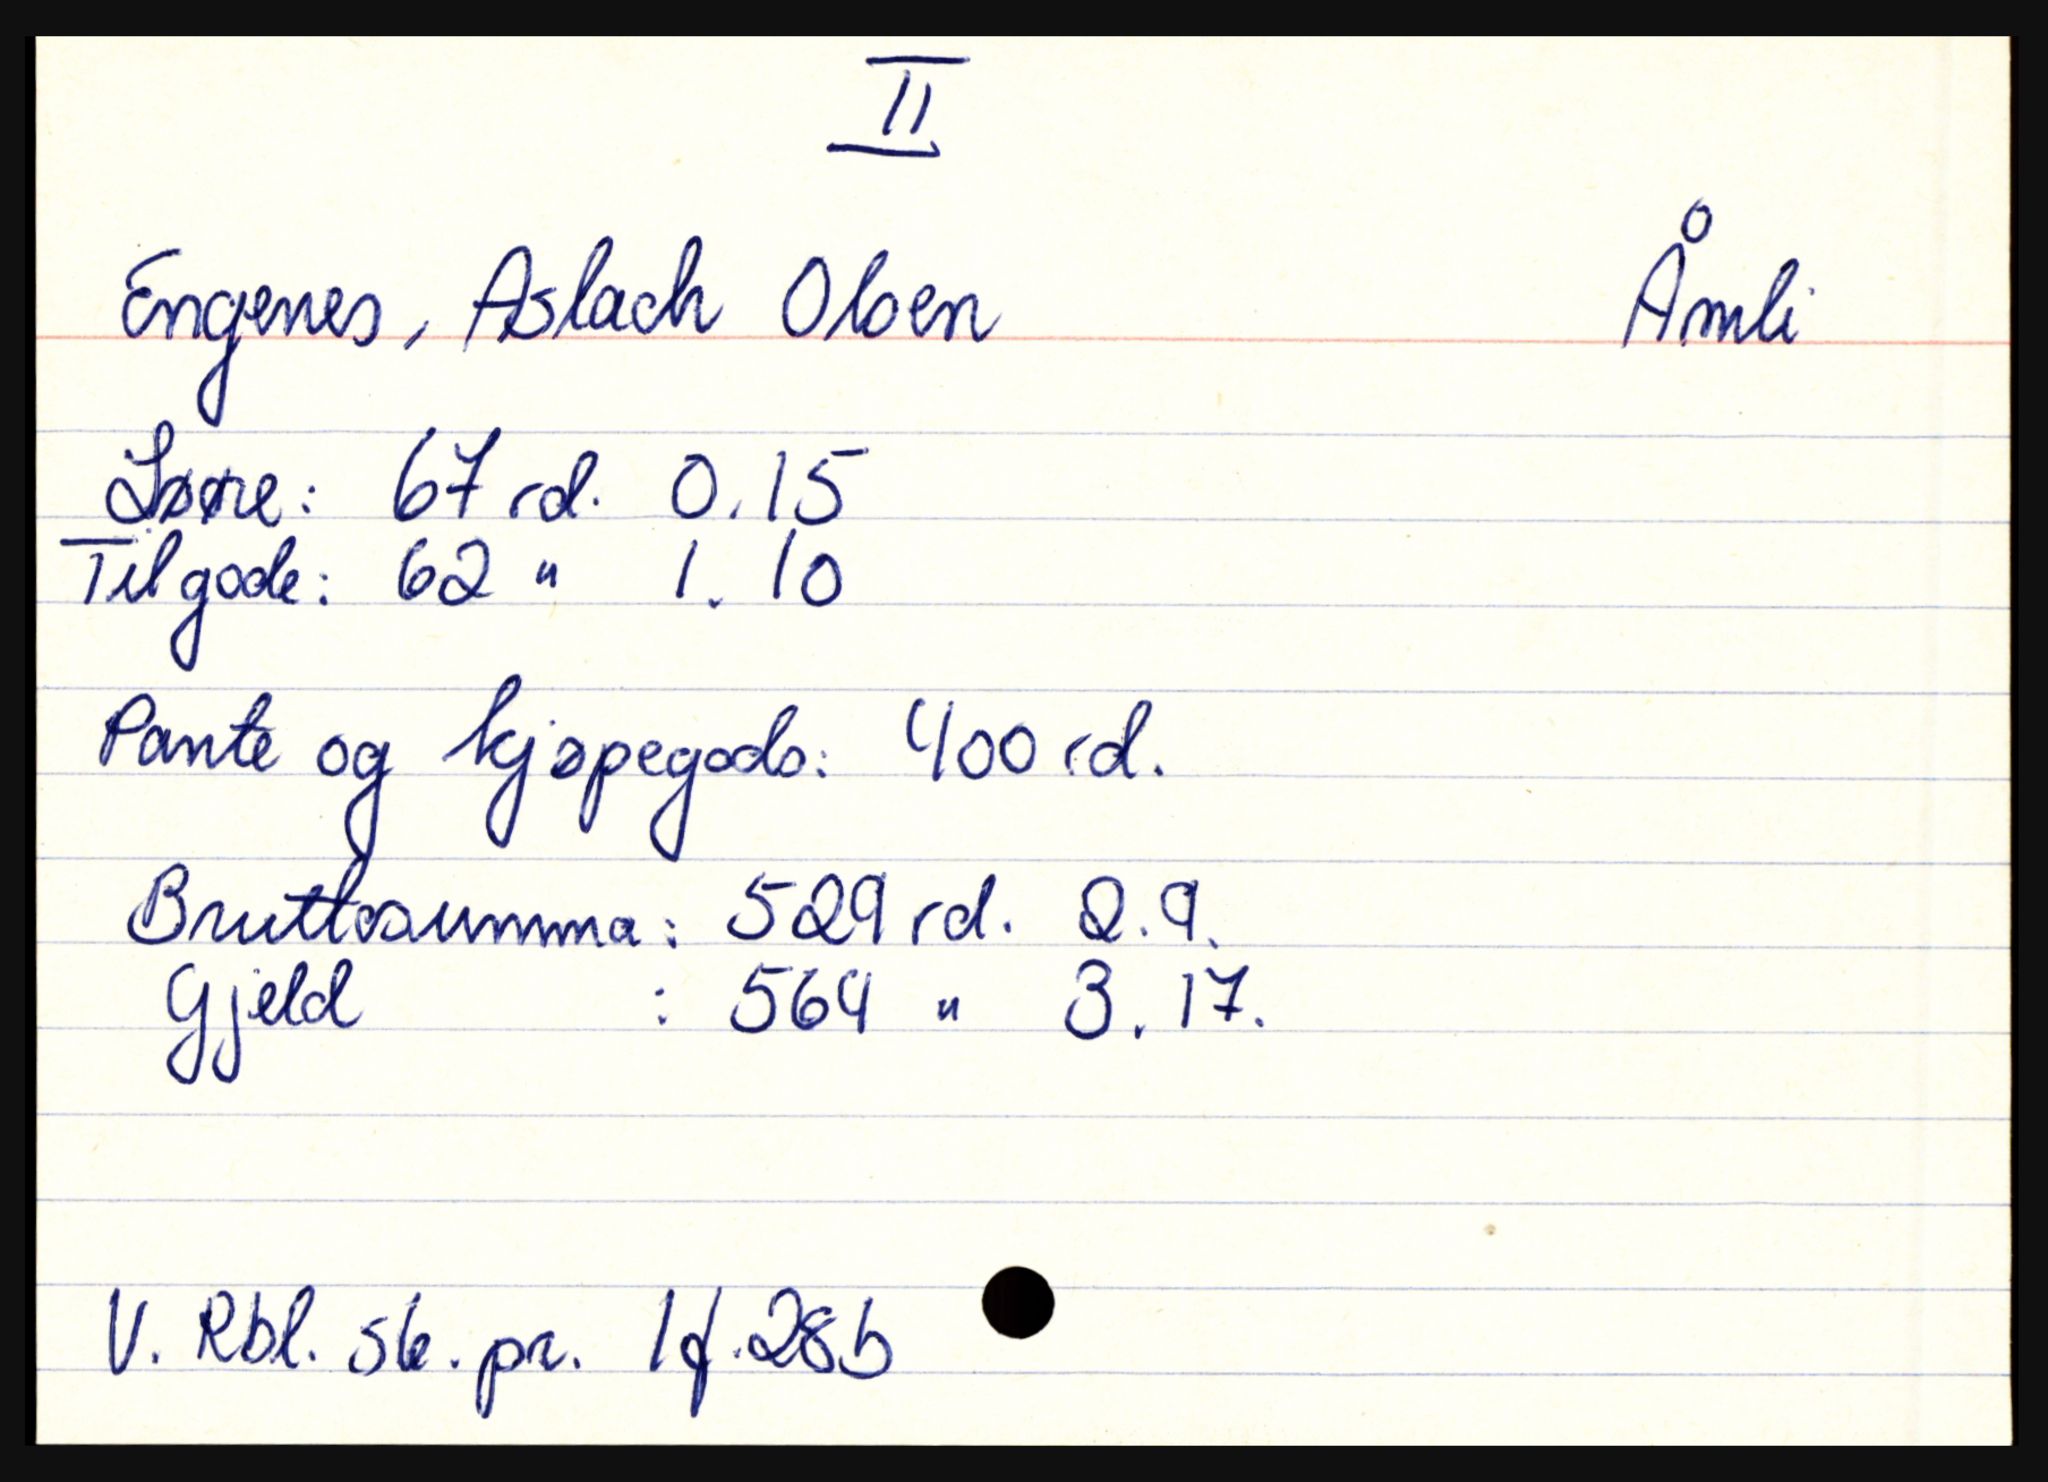 II
Engenes, Aslach Olsen Åmli
Løsøre: 67 rd. 0.15
Tilgode: 62 " 1. 10
Pante og kjøpegods: 400 rd.
Bruttosumma: 529 rd. 2.9.
Gjeld : 564 " 3.17.
V. Rbl. sk. pr. 1 f.28b